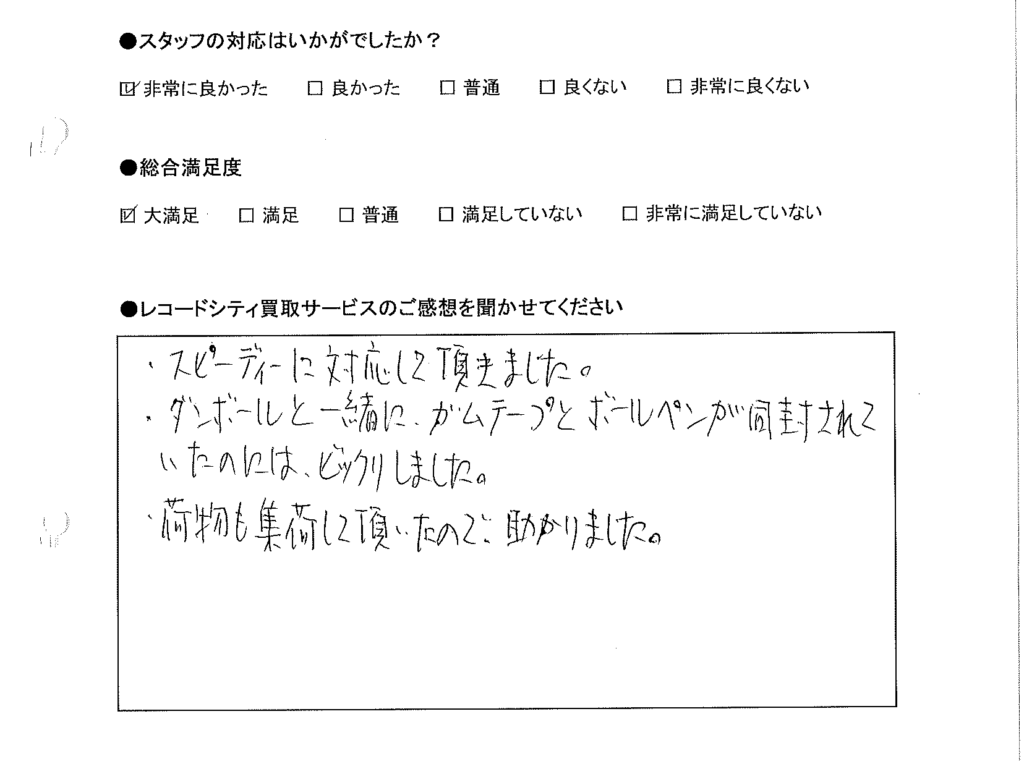 ●スタッフの対応はいかがでしたか？
☑ 非常に良かった　□ 良かった　□ 普通　□ 良くない　□ 非常に良くない
●総合満足度
☑ 大満足　□ 満足　□ 普通　□ 満足していない　□ 非常に満足していない
●レコードシティ買取サービスのご感想を聞かせてください
・スピーディーに対応して頂きました。
・ダンボールと一緒に、ガムテープとボールペンが同封されて
いたのには、ビックリしました。
・荷物も集荷して頂いたので、助かりました。